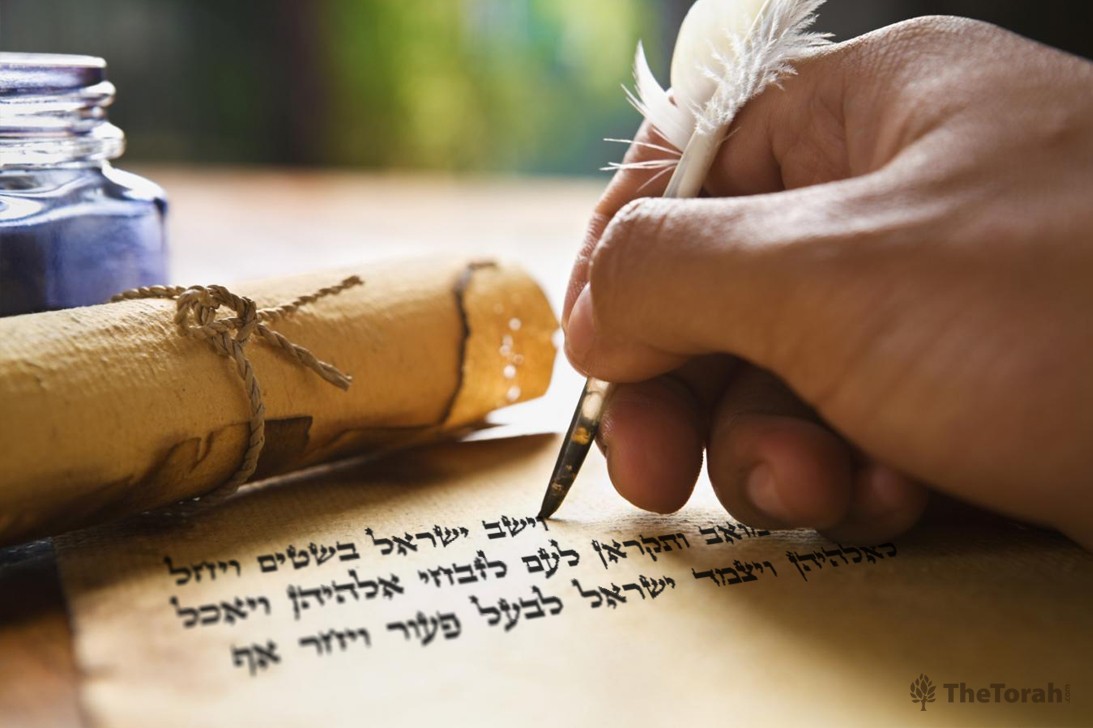 וישב ישראל בשטים ויחל
מואב ותקראן לעם לזבחי אלהיהן ויאכל
לאלהיהן ויצמד ישראל לבעל פעור ויחר אף
TheTorah!